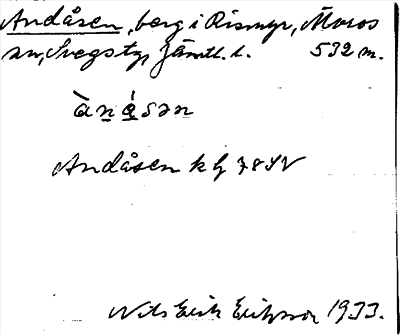 Andåsen, berg i Rismyr, Moros
sn, Svegs tg, Jämtl. l. 532 m.
àn̲á̲sən
Andåsen k G 78 SV
Nils Erik Eriksson 1933.